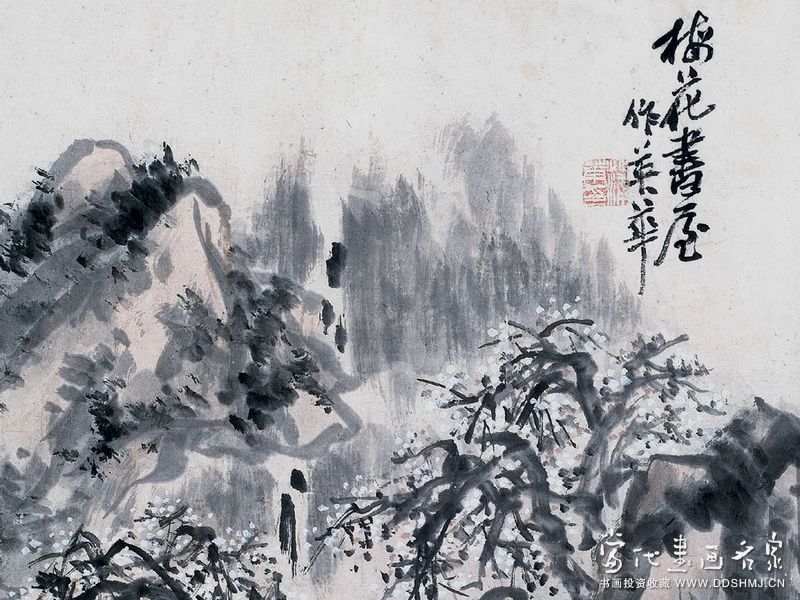 梅花書屋
作英華
当代書画名家
书画投资收藏 WWW.DDSHMJ.CN